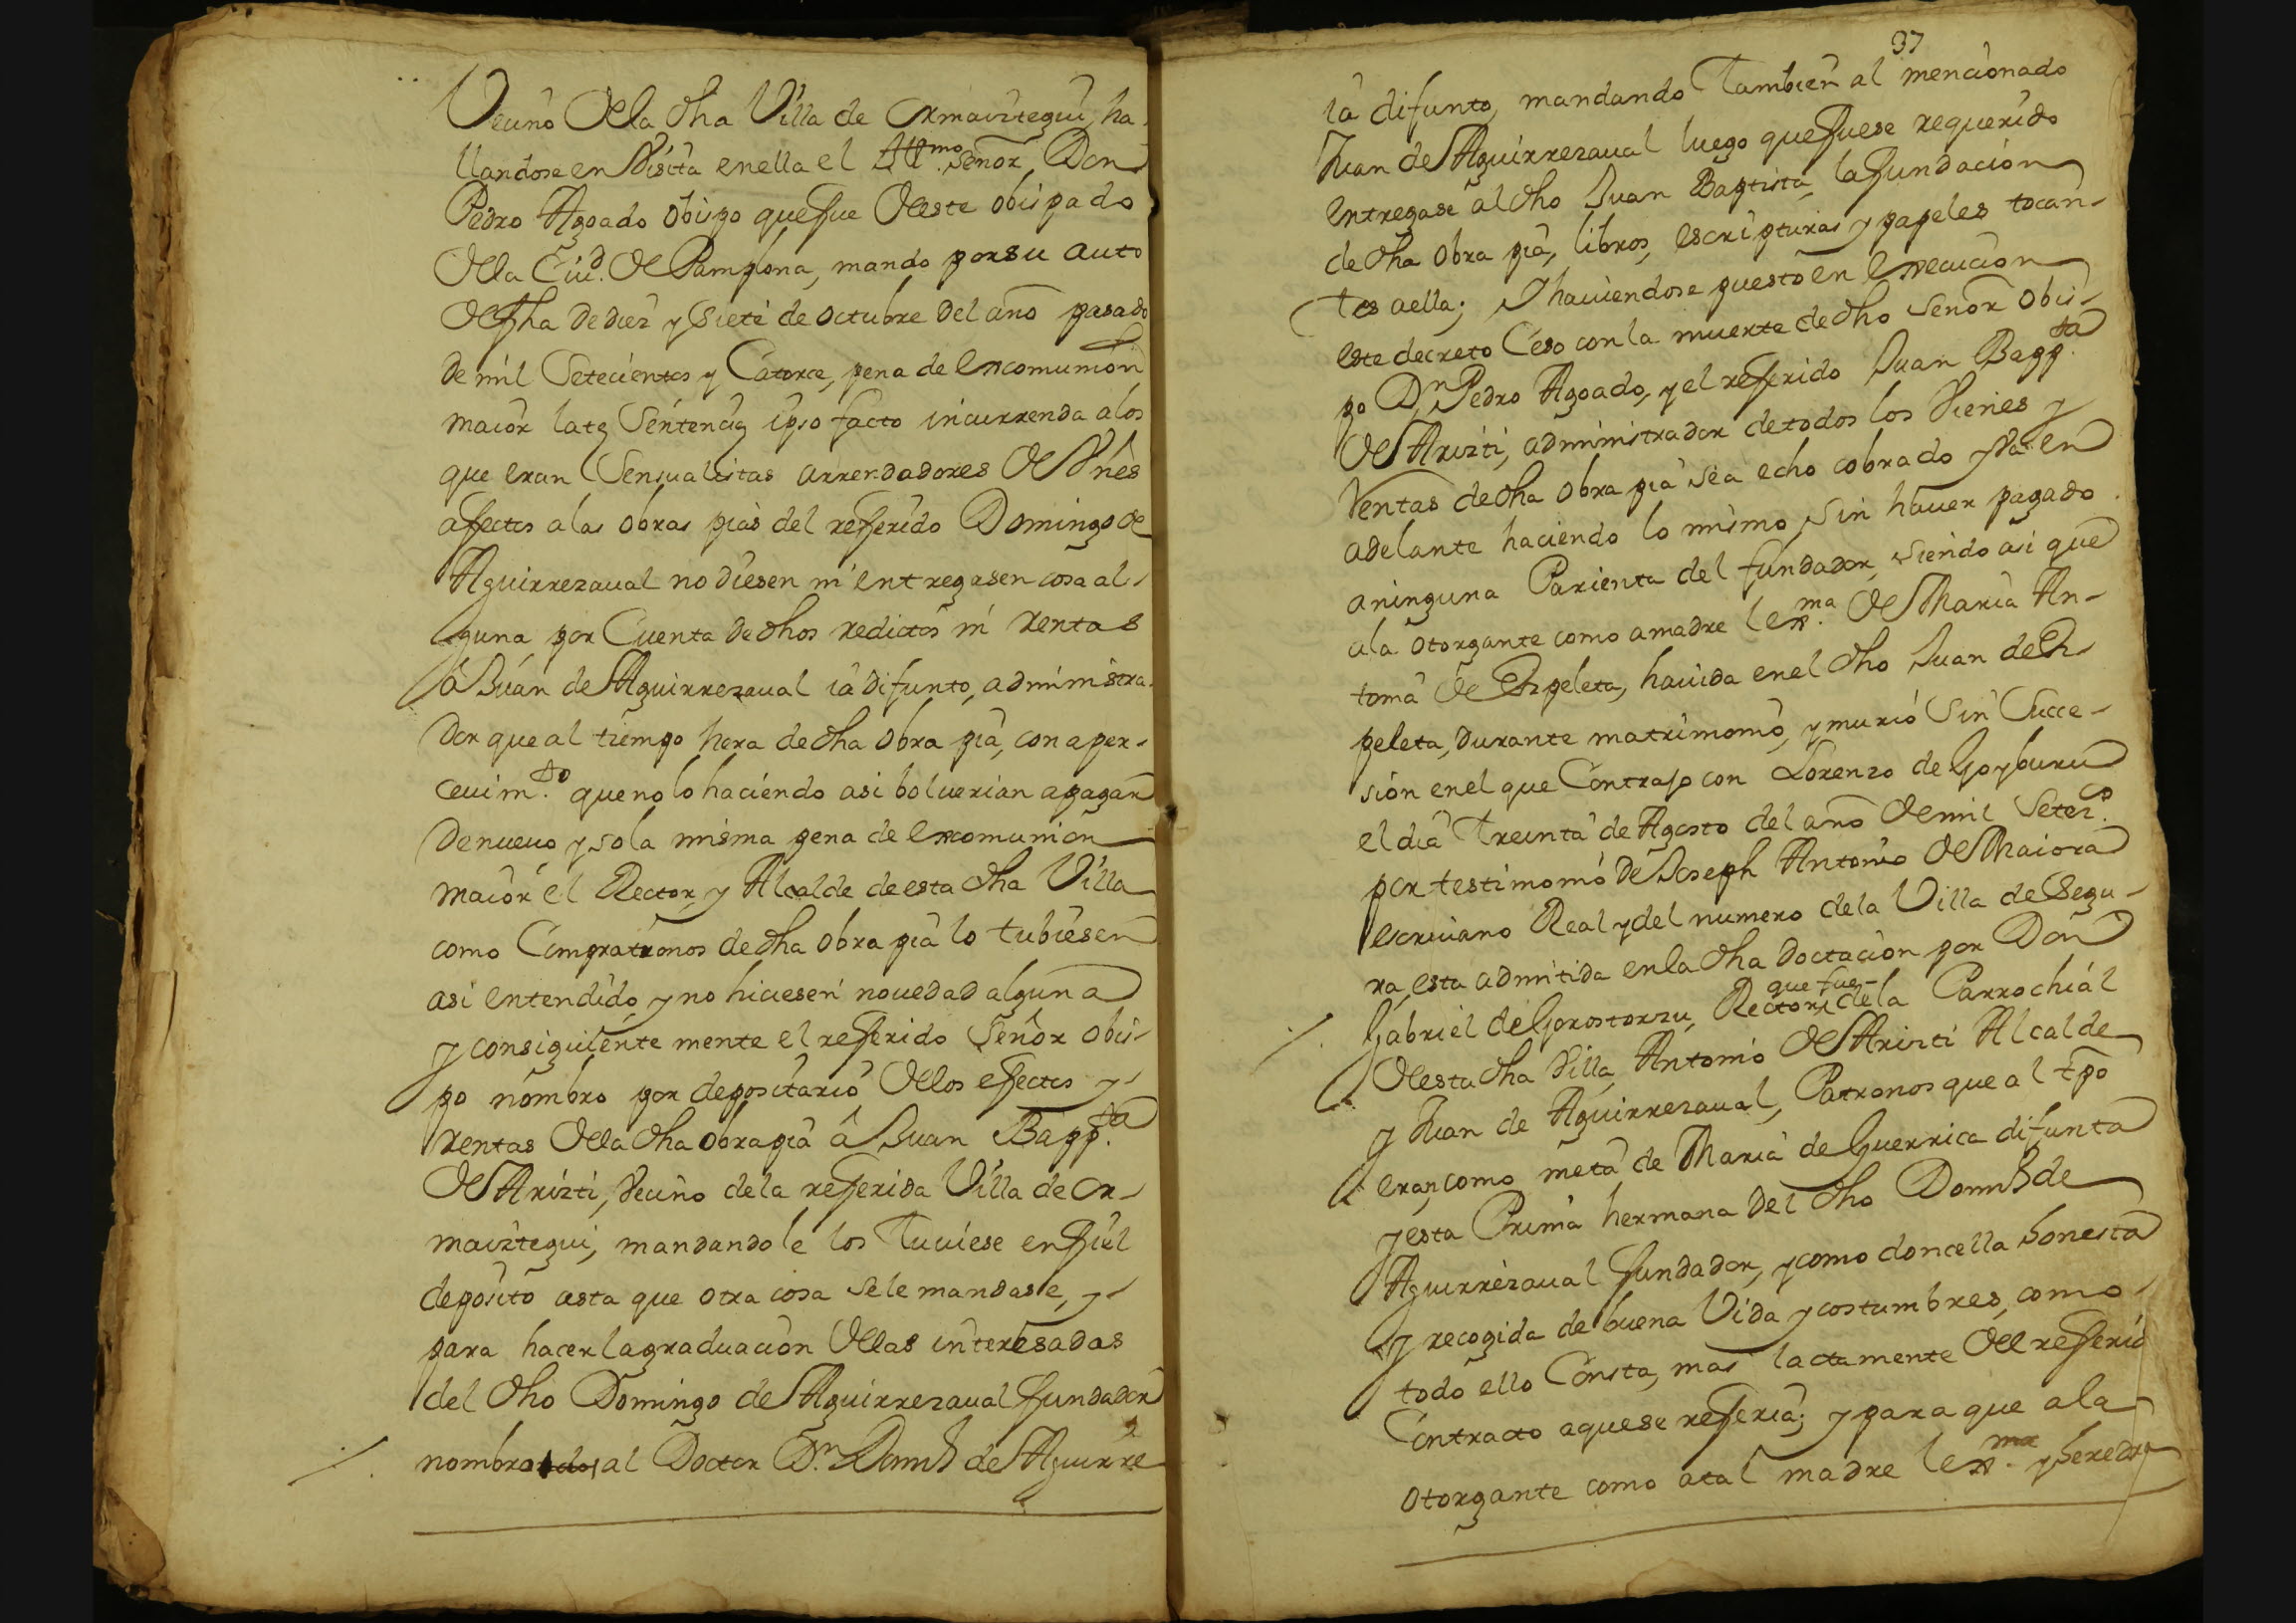 Vecino de la dha Villa de Ormaiztegui, ha-
llandose en Visita en ella el Ill.mo Señor Don
Pedro Agoado Obispo que fue de este obispado
de la Ciud. de Pamplona, mando por su auto
de fha de diez y Siete de octubre del año pasado
de mil Setecientos y Catorce, pena de Excomunion
maior late Sentencie ipso facto incurrenda a los
que eran Sensualistas arrendadores de Vnes
afectos a las obras pias del referido Domingo de
Aguirrezaual no diesen ni entregasen cosa al-
guna por Cuenta de dhos reditos ni Rentas
â Juan de Aguirrezaual ia difunto, administra-
dor que al tiempo hera de dha obra pia, con aper-
ceuim.to que no lo haciendo asi boluerian a pagar
de nueuo y so la misma pena de Excomunion
maior el Rector, y Alcalde de esta dha Villa
como Compatronos de dha obra pia lo tubiesen
asi entendido, y no hiciesen nouedad alguna
y consiguientemente el referido Señor Obis-
po nombro por depositario de los efectos y
rentas de la dha obra pia â Juan Bapp.ta
de Arizti, Vecino de la referida Villa de Or-
maiztegui, mandandole los Tuuiese en fiel
deposito asta que otra cosa se le mandase, y
para hacer la graduacion de las interesadas
del dho Domingo de Aguirrezaual fundador
nombro al Doctor D.n Domi de Aguirre
37
ia difunto, mandando Tambien al mencionado
Juan de Aguirrezaual luego que fuese requerido
entregase al dho Juan Baptista, la fundacion
de dha obra pia, libros, escripturas y papeles tocan-
tes a ella; I hauiendose puesto en Execucion
este decreto Ceso con la muerte de dho Señor Obis-
po D.n Pedro Agoado, y el referido Juan Bapp.ta
de Arizti, administrador de todos los Vienes y
Rentas de dha obra pia sea echo cobrado y ba en
adelante haciendo lo mismo, sin hauer pagado
a ninguna Parienta del fundador, siendo asi que
a la otorgante como a madre lex.ma de Maria An-
tonia de Ezpeleta, hauida en el dho Juan de Ez-
peleta, durante matrimonio, y murió Sin Succe-
sion en el que Contrajo con Lorenzo de Goyburu
el dia Treinta de Agosto del año de mil Setez.os
por testimonio de Joseph Antonio de Maiora
escriuano Real y del numero de la Villa de Segu-
ra, esta admitida en la dha doctacion por Don
Gabriel de Gorostorzu, Rector que fue de la Parrochial
de esta dha Villa, Antonio de Arizti Alcalde
y Juan de Aguirrezaual, Patronos que al tpo
eran, como nieta de Maria de Guerrica difunta
y esta Prima hermana del dho Domi de
Aguirrezaual fundador, y como doncella honesta
y recogida de buena Vida y costumbres, como
todo ello Consta, mas lactamente del referido
Contracto a que se referia; y para que a la
otorgante como a tal madre lex.ma y heredra